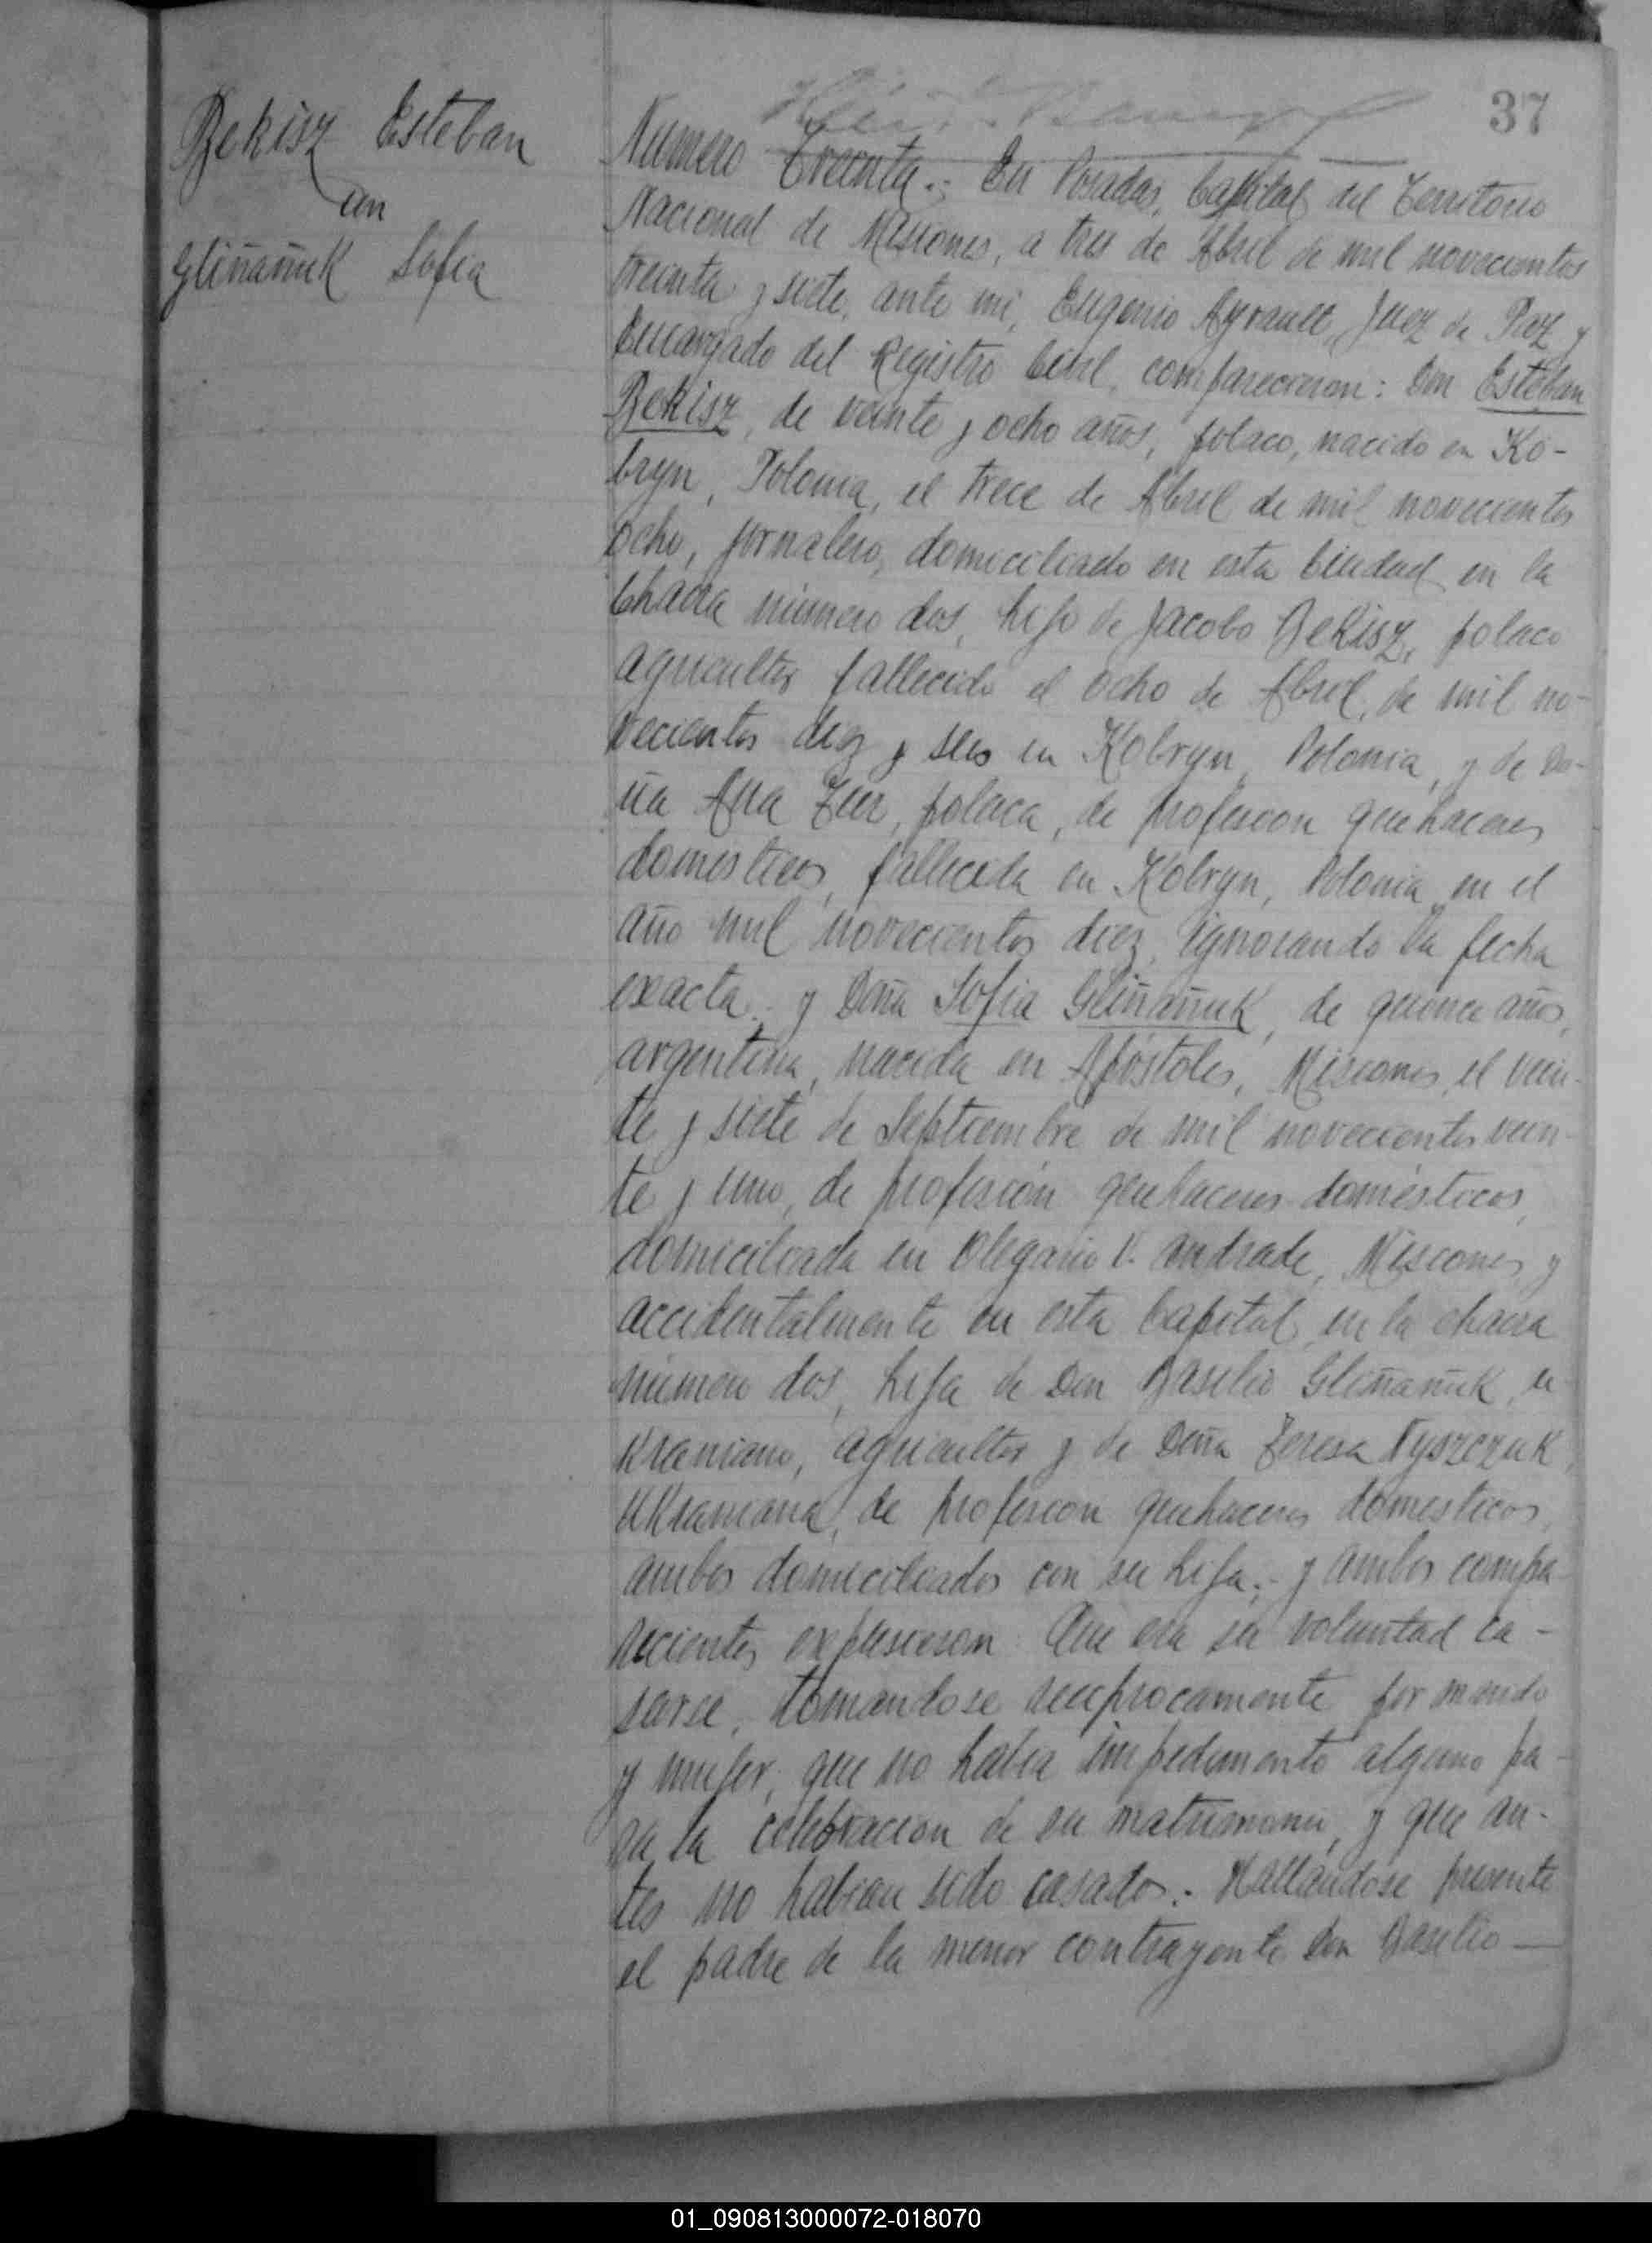 37
Bekisz Esteban
con
Gliñañuk Sofia
Numero Treinta.- En Posadas, Capital del Territorio
Nacional de Misiones, a tres de Abril de mil novecientos
treinta y siete, ante mi, Eugenio Ayrault, Juez de Paz y
Encargado del Registro Civil, comparecieron: Don Esteban
Bekisz, de veinte y ocho años, polaco, nacido en Ko-
bryn, Polonia, el trece de Abril de mil novecientos
ocho, jornalero, domiciliado en esta Ciudad en la
Chacra número dos, hijo de Jacobo Bekisz, polaco
agricultor fallecido el ocho de Abril, de mil no-
vecientos diez y seis en Kobryn, Polonia, y de Do-
ña Ana, polaca, de profesion quehaceres
domesticos, fallecida en Kobryn, Polonia en el
año mil novecientos diez, ignorando la fecha
exacta.- y Doña Sofia Gliñañuk, de quince años,
argentina, nacida en Apóstoles, Misiones, el vein-
te y siete de Septiembre de mil novecientos vein-
te y uno, de profesión quehaceres domésticos,
domiciliada en Olegario V. Andrade, Misiones y
accidentalmente en esta Capital en la chacra
número dos, hija de Don Basilio Gliñañuk, u-
kraniano, agricultor y de Doña Teresa Nyszczuk,
Ukraniana, de profesion quehaceres domesticos,
ambos domiciliados con su hija.- y ambos compa-
recientes expusieron: Que era su voluntad ca-
sarse, tomandose reciprocamente por marido
y mujer, que no habia impedimento alguno pa-
ra la celebracion de su matrimonio, y que an-
tes no habian sido casados.- Hallándose presente
el padre de la menor contrayente Don Basilio—
01_090813000072-018070